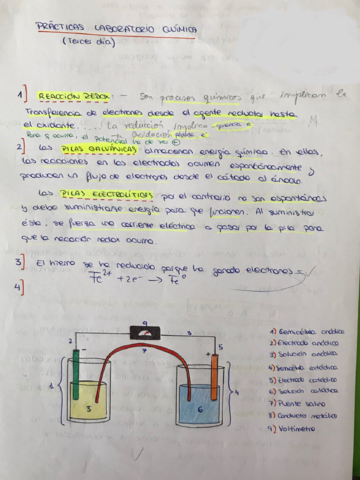 PRÁCTICAS LABORATORIO QUÍMICA
(Tercer día)
1] REACCIÓN REDOX: - Son procesos químicos que implican la
Transferencia de electrones desde el agente reductor hasta
el oxidante. .... La reducción implica ganancia e-
Oxidación pérdida e-
2] Las PILAS GALVÁNICAS almacenan energía química. En ellas,
las reacciones en los electrodos ocurren espontáneamente y
producen un flujo de electrones desde el cátodo al ánodo.
Las PILAS ELECTROLÍTICAS por el contrario no son espontáneas
y debe suministrarse energía para que funcionen. Al suministrar
ésta, se fuerza una corriente eléctrica a pasar por la pila para
que la reacción redox ocurra.
3] El hierro se ha reducido porque ha ganado electrones =
Fe2+ + 2e- → Fe0
4]
9
2 - 7 8 5 +
1 3 6 4
1) Semicelda anódica
2) Electrodo anódico
3) Solución anódica
4) Semicelda catódica
5) Electrodo catódico
6) Solución catódica
7) Puente salino
8) Conductor metálico
9) Voltímetro